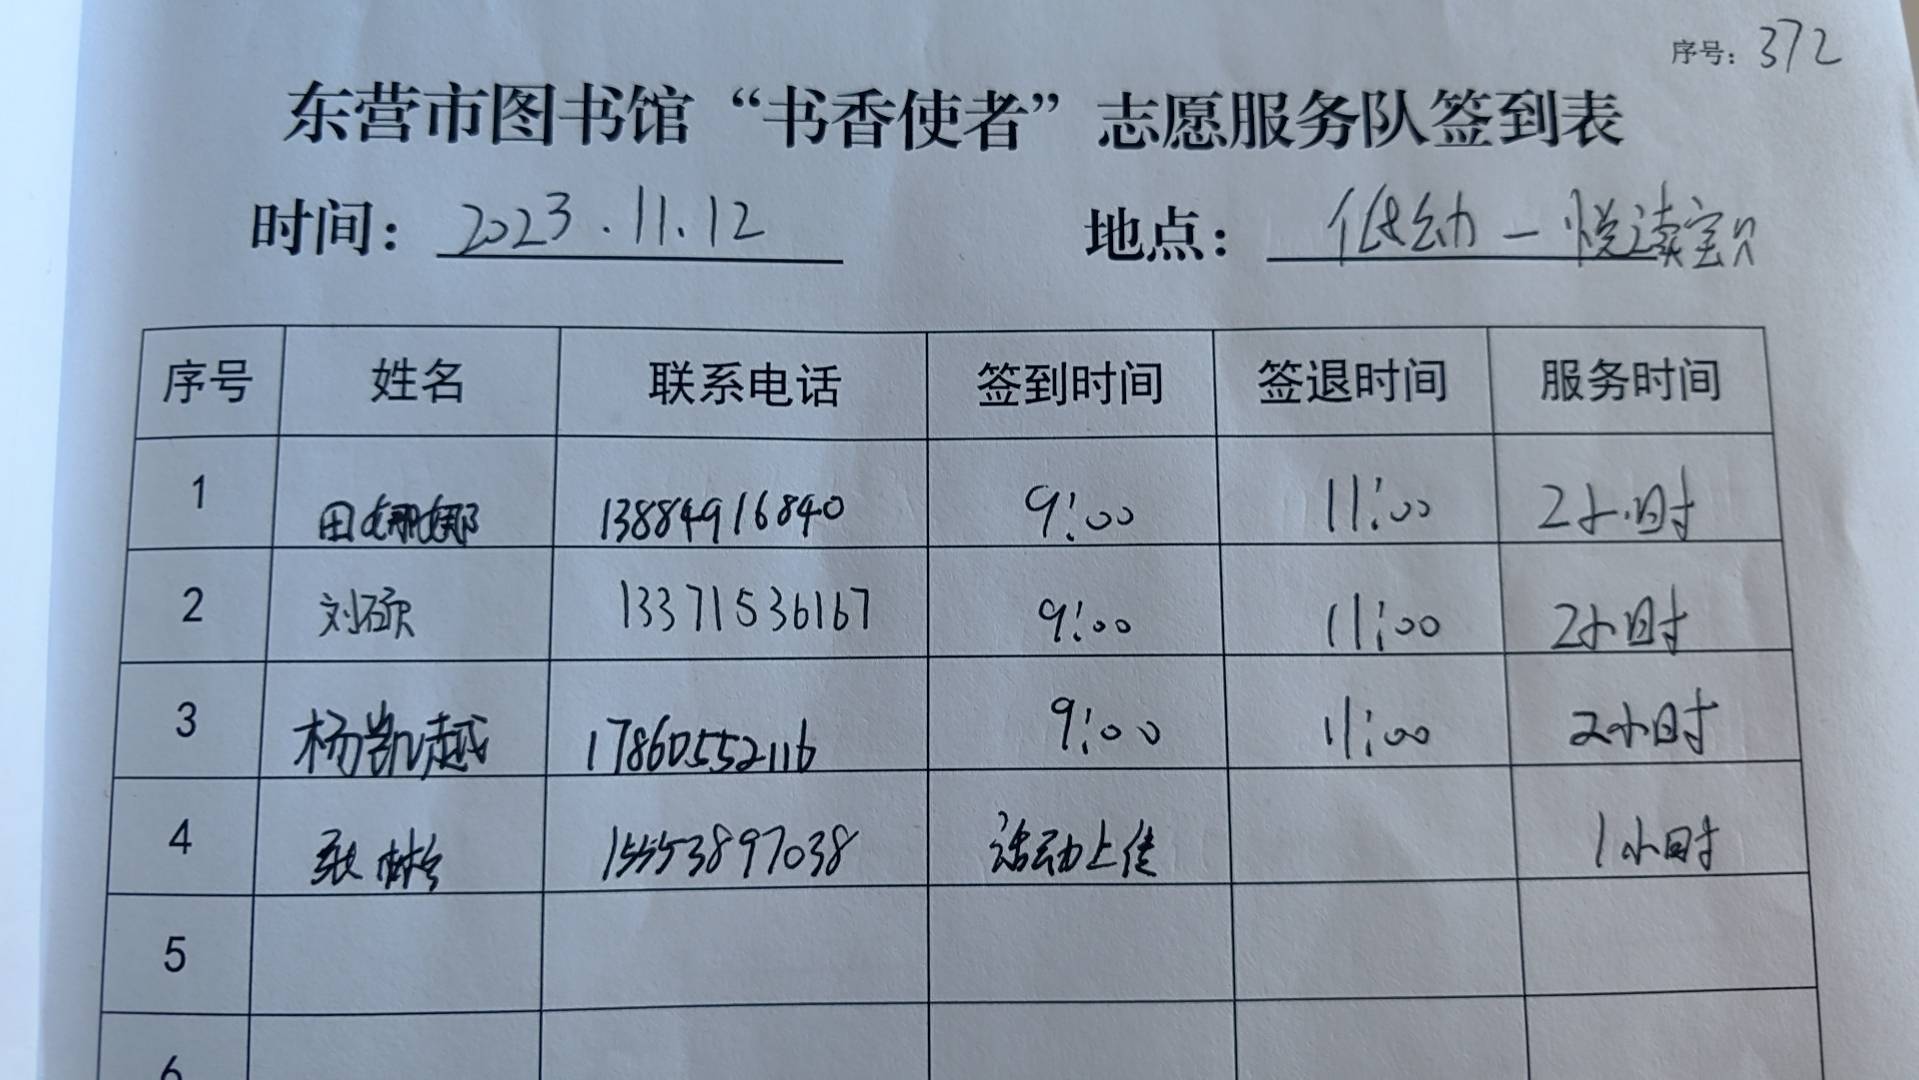 序号：372
东营市图书馆“书香使者”志愿服务队签到表
时间：2023.11.12 地点：低幼一悦读宝贝
序号 姓名 联系电话 签到时间 签退时间 服务时间
1 田娜娜 13884916840 9:00 11:00 2小时
2 刘硕 13371536167 9:00 11:00 2小时
3 杨凯越 17860552116 9:00 11:00 2小时
4 张彬 15553897038 活动上传 1小时
5
6